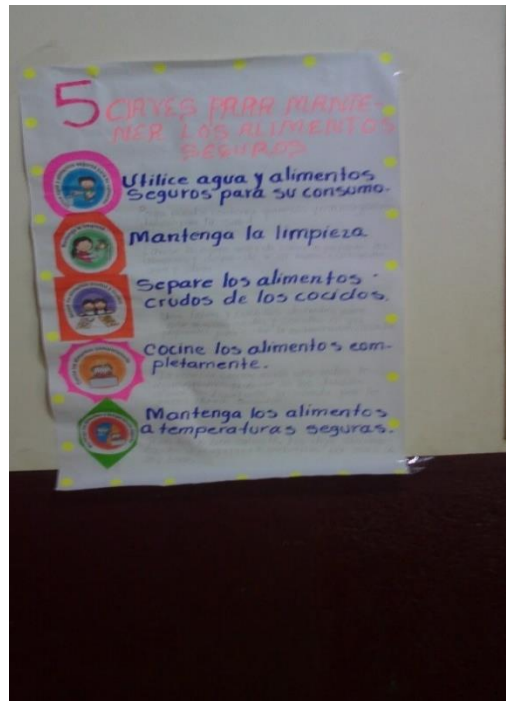 5 CLAVES PARA MANTE-
NER LOS ALIMENTOS
SEGUROS
Utilice agua y alimentos
seguros para su consumo.
Mantenga la limpieza
Separe los alimentos
crudos de los cocidos.
Cocine los alimentos com-
pletamente.
Mantenga los alimentos
a temperaturas seguras.